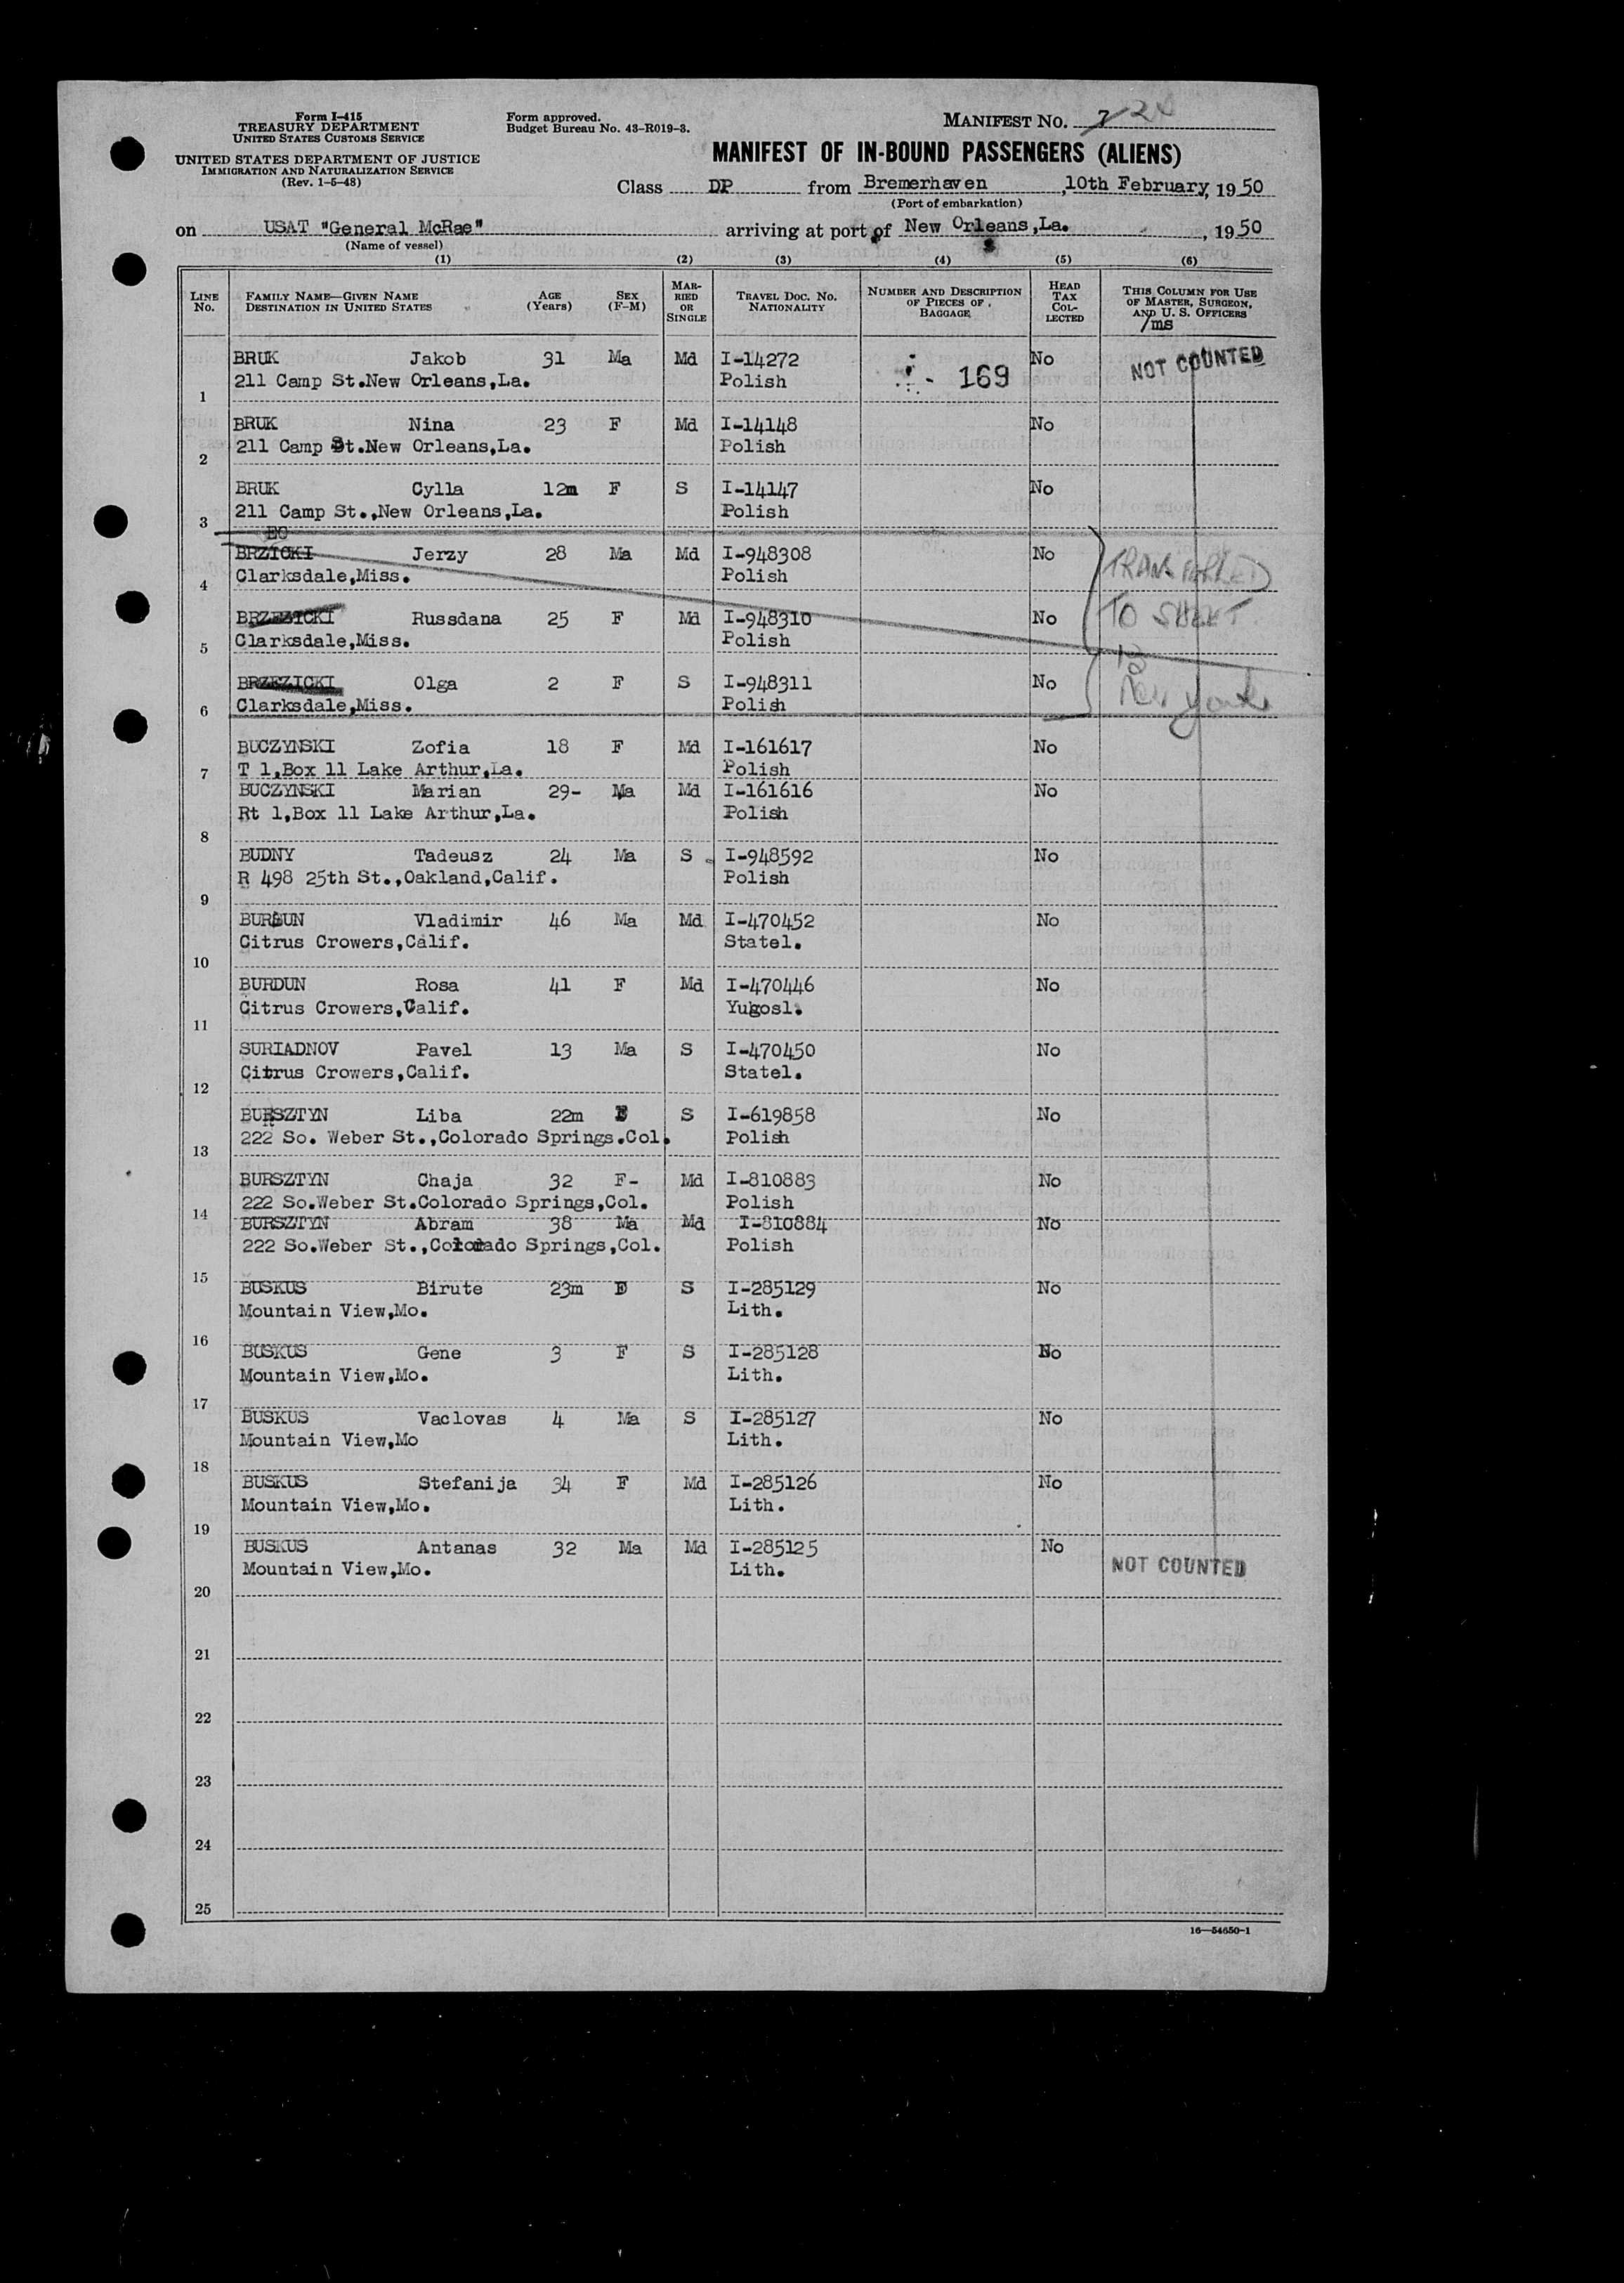 Form I-415
TREASURY DEPARTMENT
UNITED STATES CUSTOMS SERVICE
UNITED STATES DEPARTMENT OF JUSTICE
IMMIGRATION AND NATURALIZATION SERVICE
(Rev. 1-5-48)
Form approved.
Budget Bureau No. 43-R019-3.
MANIFEST NO. 7
MANIFEST OF IN-BOUND PASSENGERS (ALIENS)
Class DP from Bremerhaven ,10th February, 1950
(Port of embarkation)
on USAT "General McRae" arriving at port of New Orleans,La. , 1950
(Name of vessel)
(1) (2) (3) (4) (5) (6)
LINE No. FAMILY NAME—GIVEN NAME DESTINATION IN UNITED STATES AGE (Years) SEX (F-M) MARRIED OR SINGLE TRAVEL DOC. NO. NATIONALITY NUMBER AND DESCRIPTION OF PIECES OF BAGGAGE HEAD TAX COLLECTED THIS COLUMN FOR USE OF MASTER, SURGEON, AND U. S. OFFICERS
/ms
BRUK Jakob 31 Ma Md I-14272 No NOT COUNTED
211 Camp St.New Orleans,La. Polish - 169
1
BRUK Nina 23 F Md I-14148 No
211 Camp St.New Orleans,La. Polish
2
BRUK Cylla 12m F S I-14147 No
211 Camp St.,New Orleans,La. Polish
3
BRZICKI Jerzy 28 Ma Md I-948308 No TRANSFERRED
Clarksdale,Miss. Polish
4
BRZEZICKI Russdana 25 F Md I-948310 No TO SHEET
Clarksdale,Miss. Polish
5
BRZEZICKI Olga 2 F S I-948311 No
Clarksdale,Miss. Polish New York
6
BUCZYNSKI Zofia 18 F Md I-161617 No
T 1,Box 11 Lake Arthur,La. Polish
7
BUCZYNSKI Marian 29- Ma Md I-161616 No
Rt 1,Box 11 Lake Arthur,La. Polish
8
BUDNY Tadeusz 24 Ma S I-948592 No
R 498 25th St.,Oakland,Calif. Polish
9
BURDUN Vladimir 46 Ma Md I-470452 No
Citrus Crowers,Calif. Statel.
10
BURDUN Rosa 41 F Md I-470446 No
Citrus Crowers,Calif. Yugosl.
11
SURIADNOV Pavel 13 Ma S I-470450 No
Citrus Crowers,Calif. Statel.
12
BURSZTYN Liba 22m F S I-619858 No
222 So. Weber St.,Colorado Springs.Col. Polish
13
BURSZTYN Chaja 32 F- Md I-810883 No
222 So.Weber St.Colorado Springs,Col. Polish
14
BURSZTYN Abram 38 Ma Md I-810884 No
222 So.Weber St.,Colorado Springs,Col. Polish
15
BUSKUS Birute 23m F S I-285129 No
Mountain View,Mo. Lith.
16
BUSKUS Gene 3 F S I-285128 No
Mountain View,Mo. Lith.
17
BUSKUS Vaclovas 4 Ma S I-285127 No
Mountain View,Mo Lith.
18
BUSKUS Stefanija 34 F Md I-285126 No
Mountain View,Mo. Lith.
19
BUSKUS Antanas 32 Ma Md I-285125 No
Mountain View,Mo. Lith. NOT COUNTED
20
21
22
23
24
25
16—54650-1